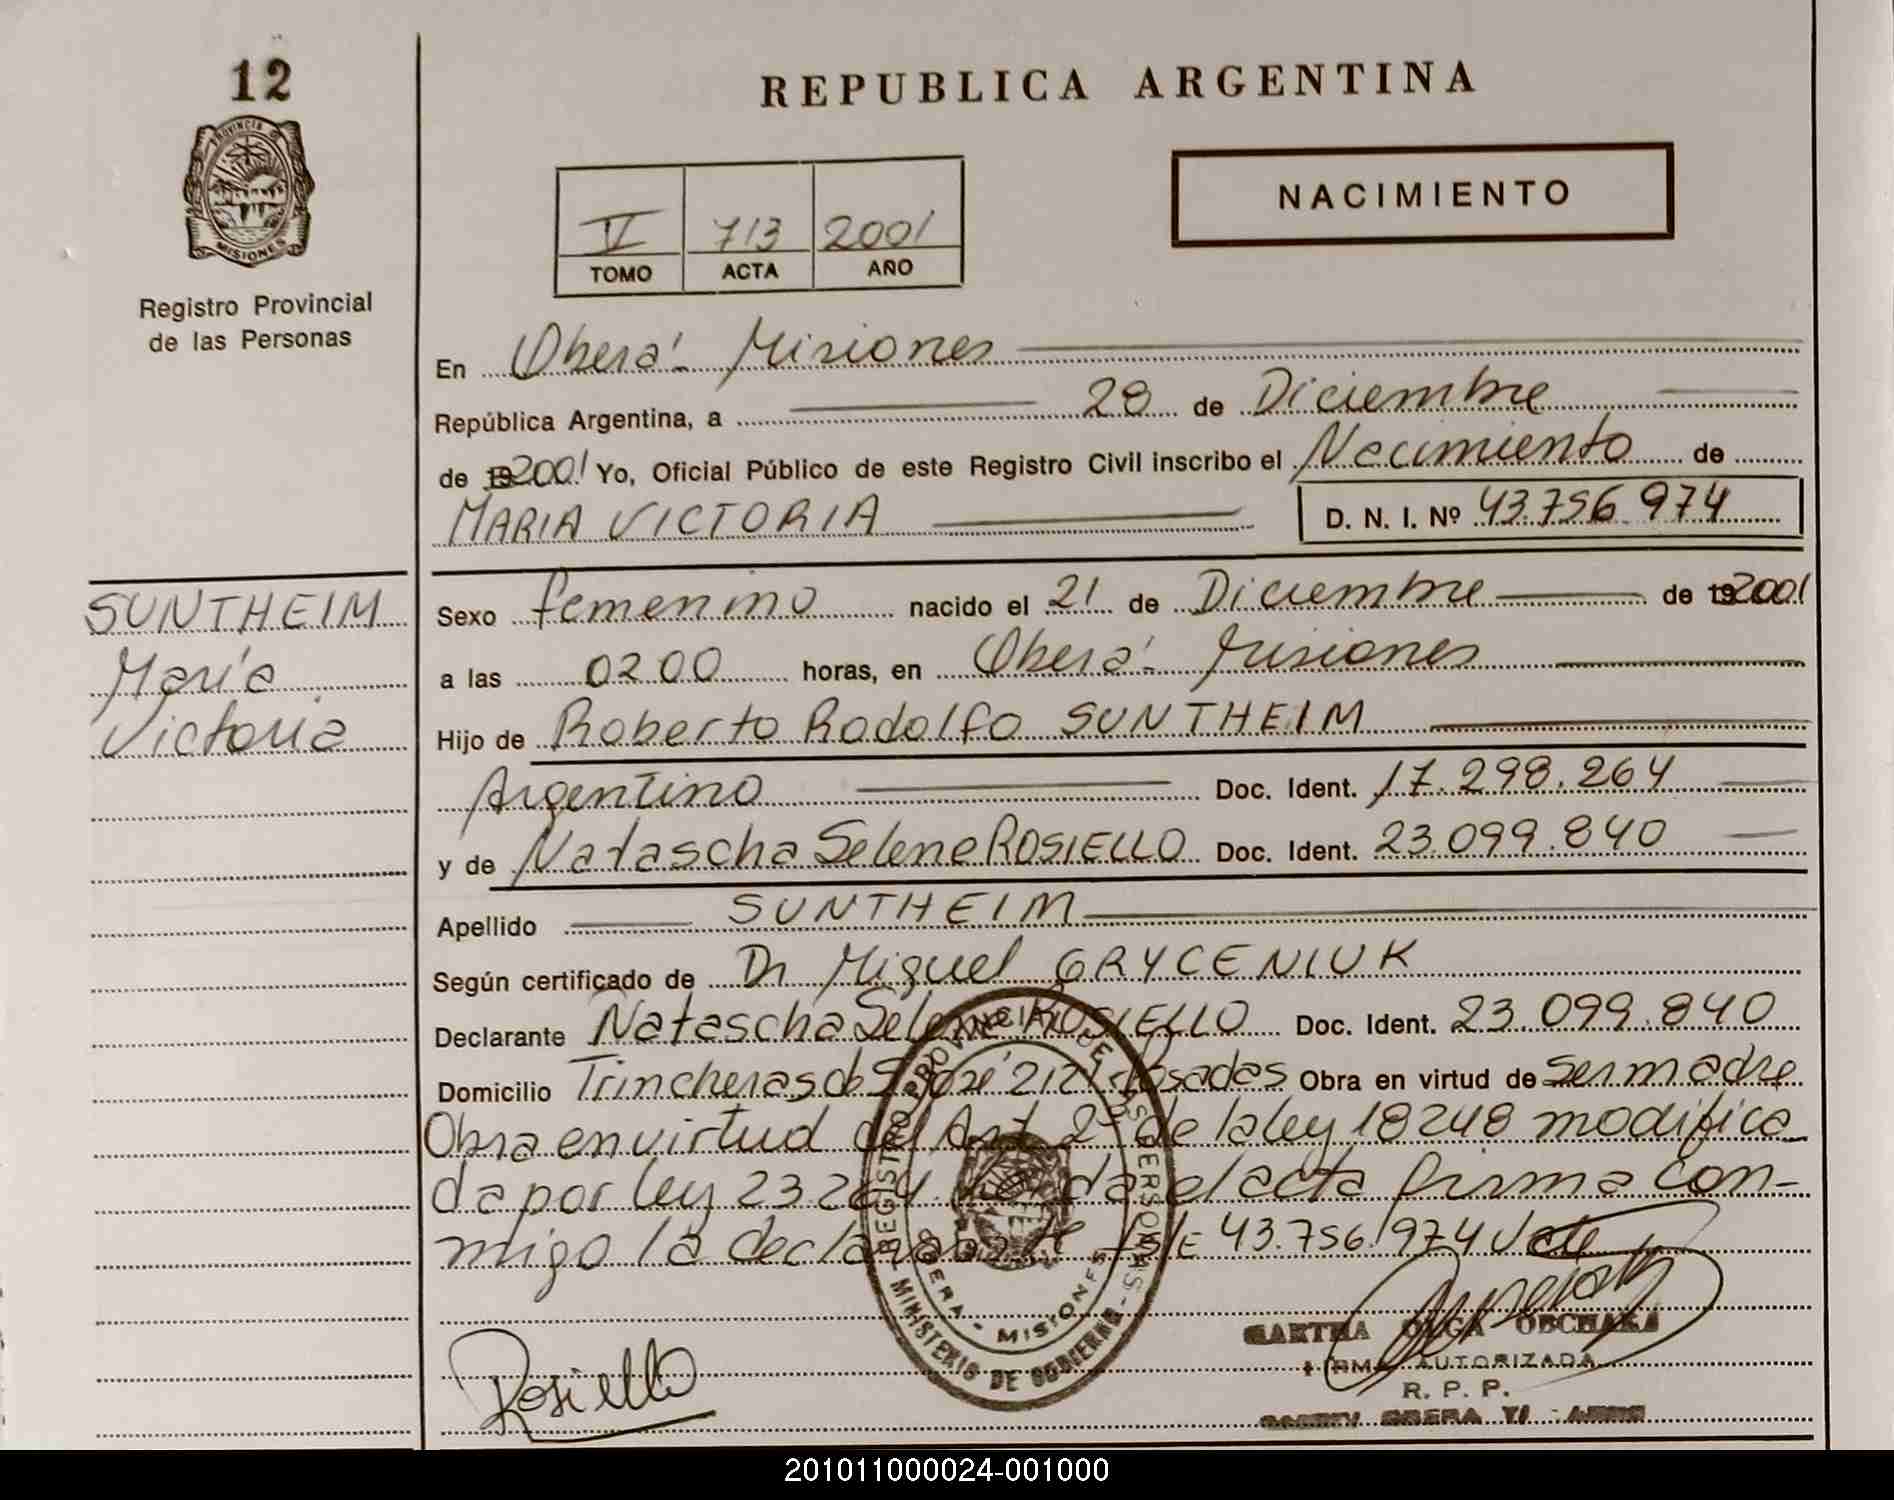 12
PROVINCIA DE
MISIONES
Registro Provincial
de las Personas
SUNTHEIM
María
Victoria
REPUBLICA ARGENTINA
NACIMIENTO
V 713 2001
TOMO ACTA AÑO
En Oberá - Misiones
República Argentina, a 28 de Diciembre
de 2001 Yo, Oficial Público de este Registro Civil inscribo el Nacimiento de
MARIA VICTORIA D. N. I. Nº 43.756.974
Sexo femenino nacido el 21 de Diciembre de 2001
a las 02 00 horas, en Oberá - Misiones
Hijo de Roberto Rodolfo SUNTHEIM
Argentino Doc. Ident. 17.298.264
y de Natascha Selene ROSIELLO Doc. Ident. 23.099.840
Apellido SUNTHEIM
Según certificado de Dr Miguel GRYCENIUK
Declarante Natascha Selene ROSIELLO Doc. Ident. 23.099.840
Domicilio Trincheras de S José 2121 - Posadas Obra en virtud de ser madre
Obra en virtud del Art 2º de la ley 18248 modifica
da por ley 23.264. el acta firma con-
migo la declarante 43.756.974 Vale
REGISTRO PROVINCIAL DE LAS PERSONAS
MINISTERIO DE GOBIERNO
OBERA - MISIONES
Rosiello
OLGA OBCHAKA
FIRMA AUTORIZADA
R. P. P.
201011000024-001000